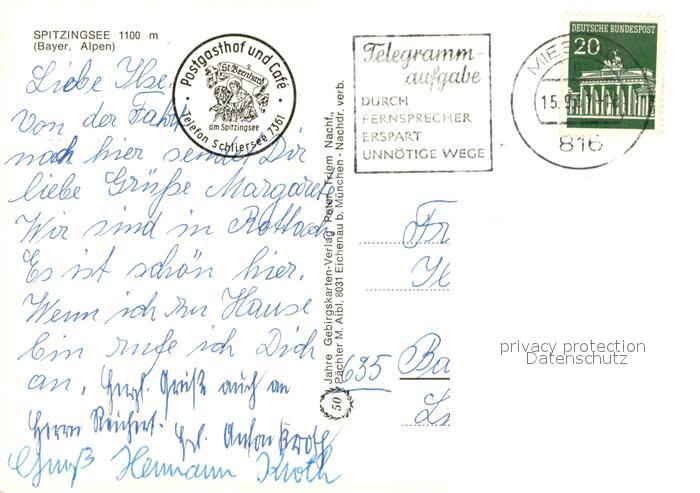 SPITZINGSEE 1100 m
(Bayer. Alpen)
Liebe Ilse.
Von der Fahrt
nach hier sendet Dir
liebe Grüße Margarete
Wir sind in Rottach
Es ist schön hier.
Wenn ich zu Hause
bin rufe ich Dich
an. Herzl. Grüße auch an
Herrn Reichert. Anton Kroth
Gruß Hermann Kroth
Postgasthof und Café
St. Bernhard
am Spitzingsee
Telefon Schliersee 7361
50 Jahre Gebirgskarten-Verlag Peter Triem Nachf.,
Pächter M. Aibl, 8031 Eichenau b. München - Nachdr. verb.
Telegramm-
aufgabe
DURCH
FERNSPRECHER
ERSPART
UNNÖTIGE WEGE
MIES
15.9
816
DEUTSCHE BUNDESPOST
20
Fr
Il
635 Ba
privacy protection
Datenschutz